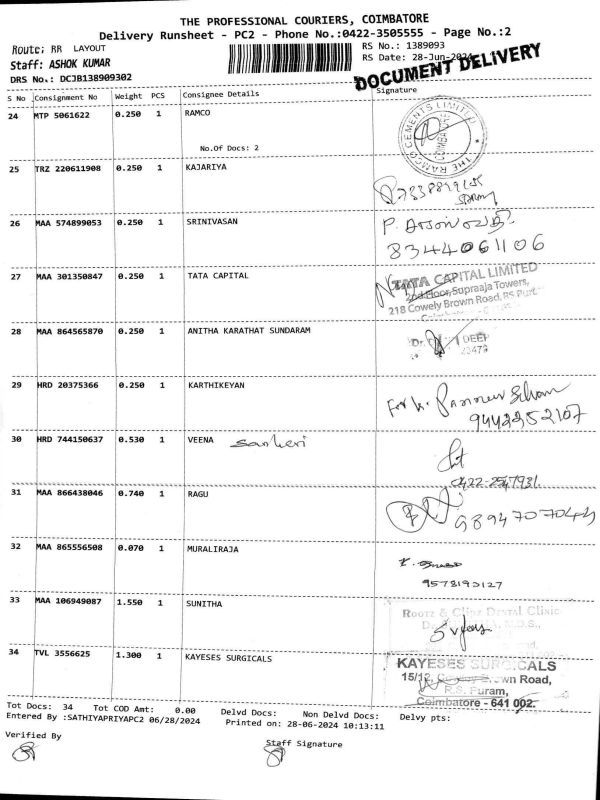 THE PROFESSIONAL COURIERS, COIMBATORE
Delivery Runsheet - PC2 - Phone No.:0422-3505555 - Page No.:2
Route: RR LAYOUT
RS No.: 1389093
Staff: ASHOK KUMAR
RS Date: 28-Jun-2024
DOCUMENT DELIVERY
DRS No.: DCJB138909302
S No Consignment No Weight PCS Consignee Details Signature
24 MTP 5061622 0.250 1 RAMCO
THE RAMCO CEMENTS LIMITED
COIMBATORE
No.Of Docs: 2
25 TRZ 220611908 0.250 1 KAJARIYA
26 MAA 574899053 0.250 1 SRINIVASAN
8344061106
27 MAA 301350847 0.250 1 TATA CAPITAL
TATA CAPITAL LIMITED
2nd Floor, Supraaja Towers,
218 Cowely Brown Road, RS Puram
28 MAA 864565870 0.250 1 ANITHA KARATHAT SUNDARAM
Dr. DEEP
29 HRD 20375366 0.250 1 KARTHIKEYAN
9442252107
30 HRD 744150637 0.530 1 VEENA
0422-2547931
31 MAA 866438046 0.740 1 RAGU
9894707044
32 MAA 865556508 0.070 1 MURALIRAJA
9578193127
33 MAA 106949087 1.550 1 SUNITHA
Rootz & Clinz Dental Clinic
34 TVL 3556625 1.300 1 KAYESES SURGICALS
KAYESES SURGICALS
15/12, Cowley Brown Road,
R.S. Puram,
Coimbatore - 641 002.
Tot Docs: 34 Tot COD Amt: 0.00 Delvd Docs: Non Delvd Docs: Delvy pts:
Entered By :SATHIYAPRIYAPC2 06/28/2024 Printed on: 28-06-2024 10:13:11
Verified By
Staff Signature